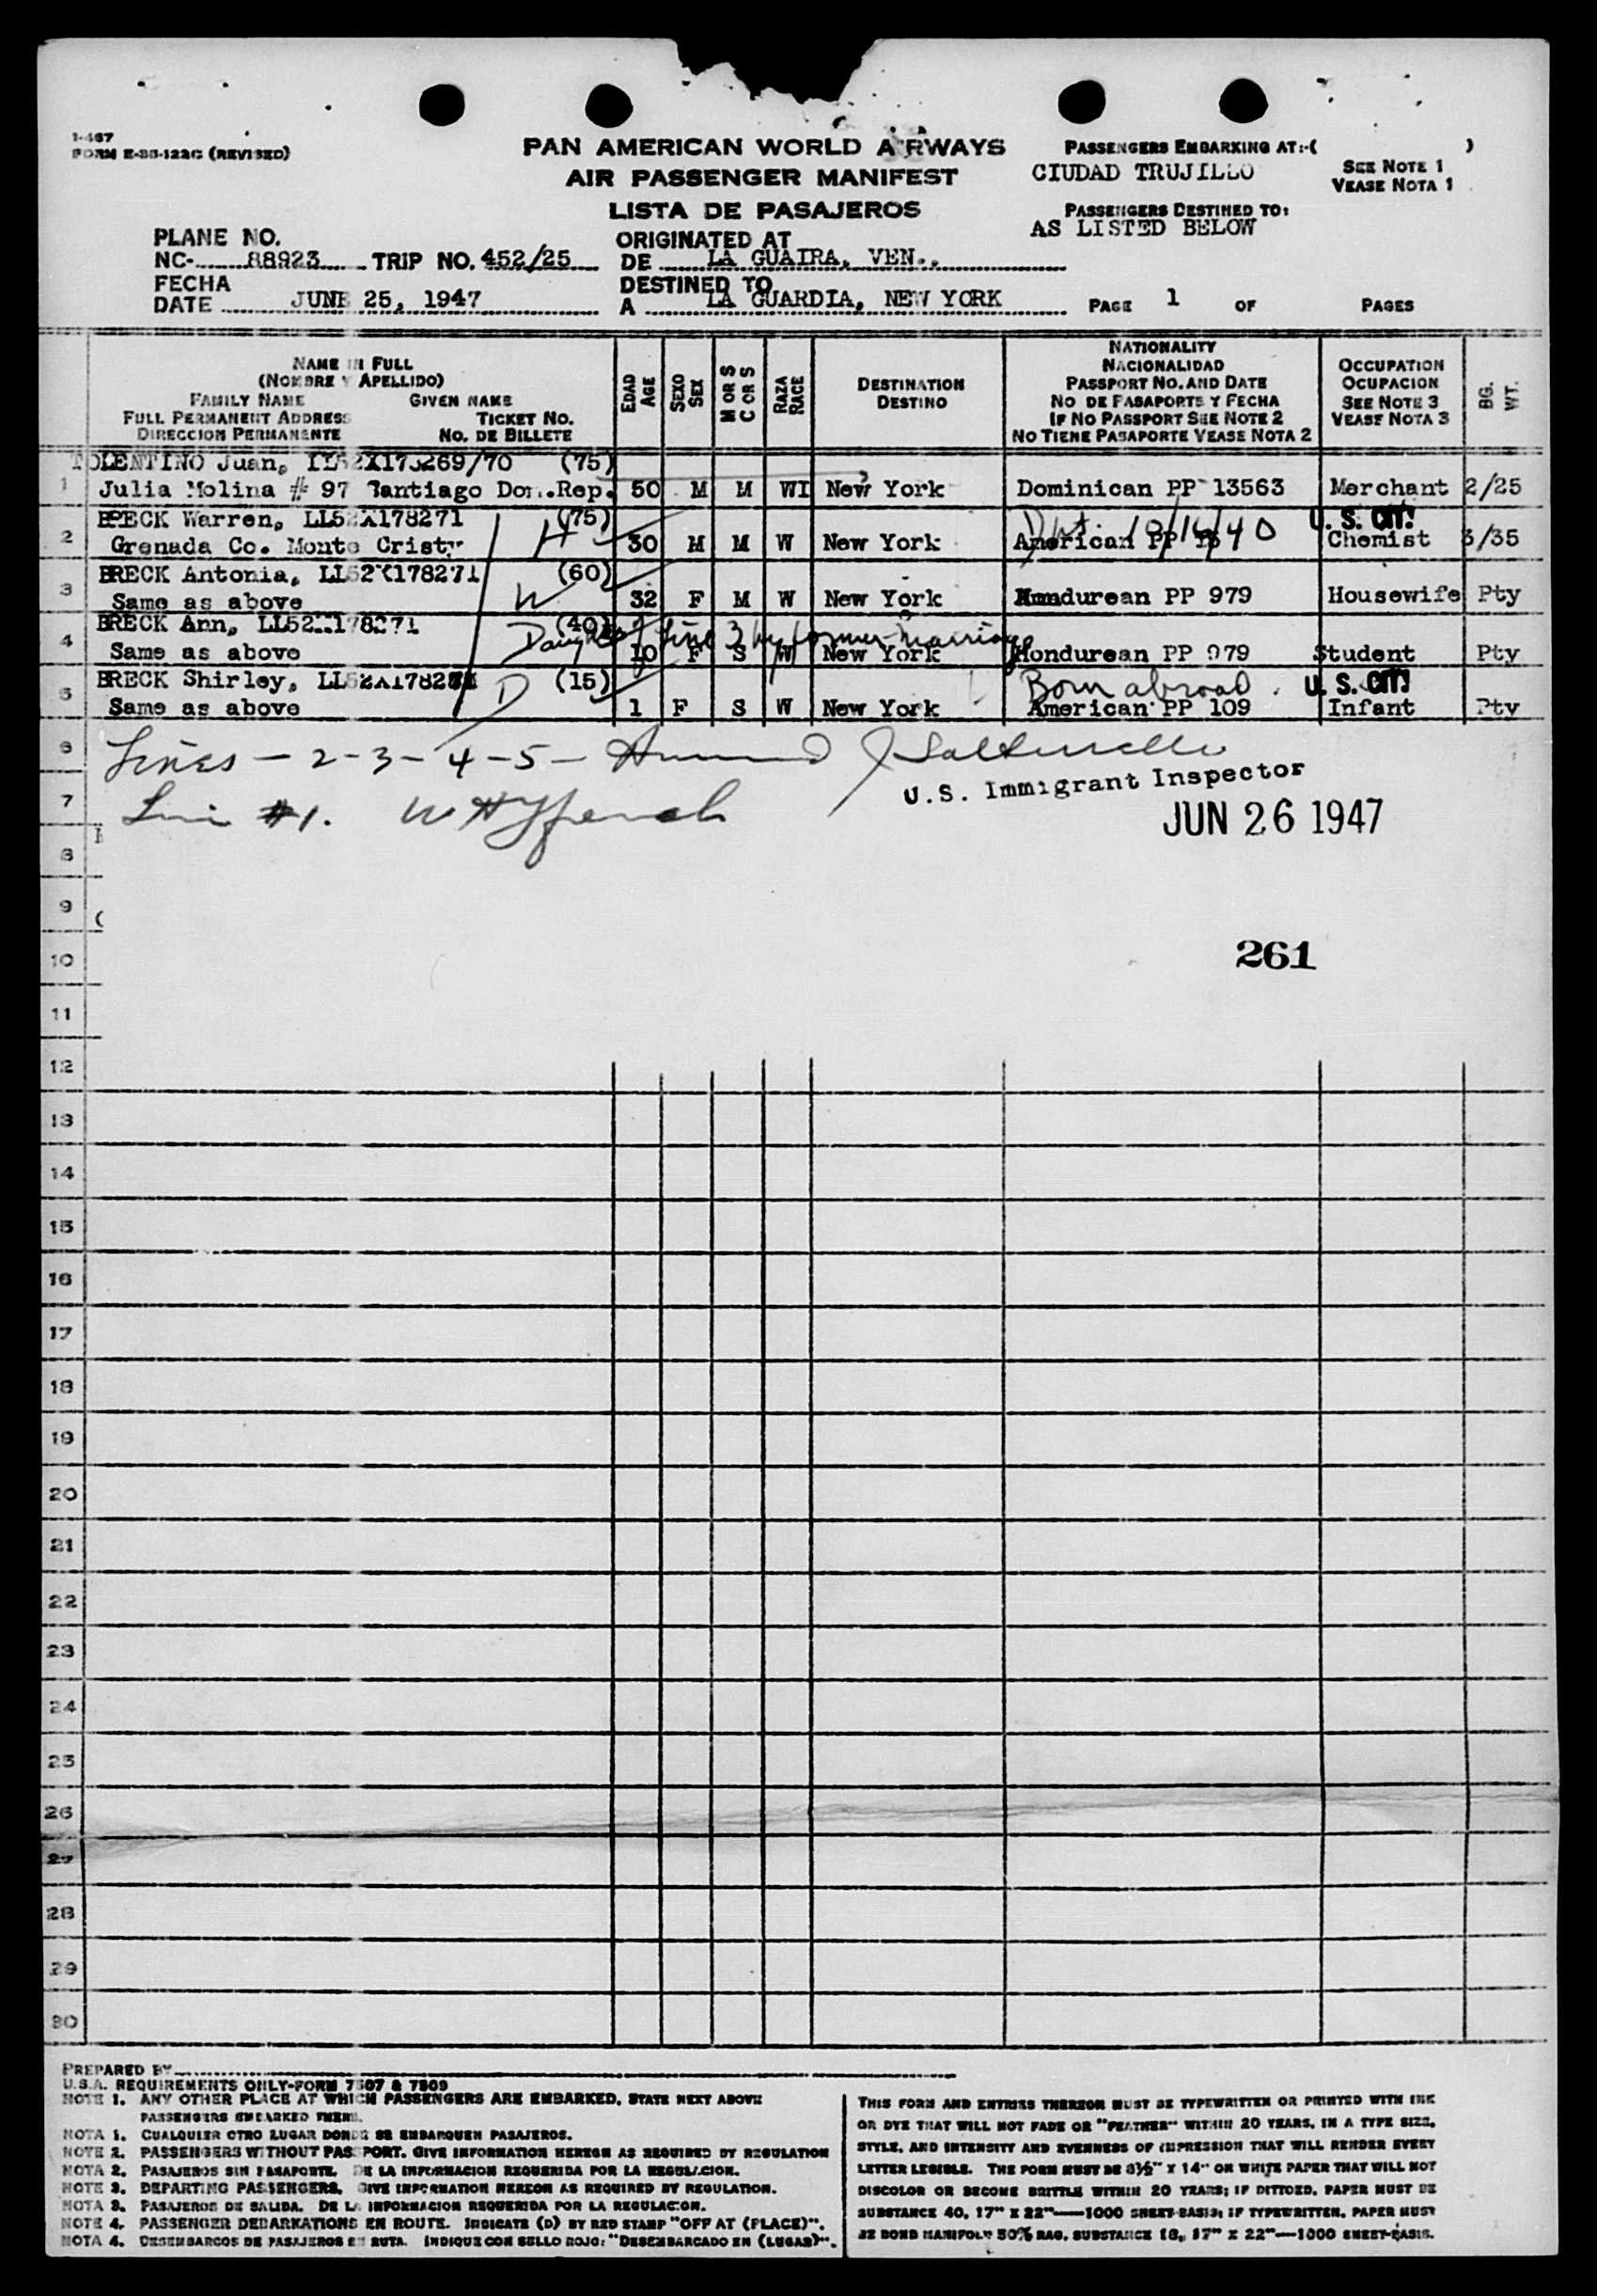 1-467
FORM E-86-122C (REVISED)
PAN AMERICAN WORLD AIRWAYS
AIR PASSENGER MANIFEST
LISTA DE PASAJEROS
PASSENGERS EMBARKING AT:-( )
CIUDAD TRUJILLO
SEE NOTE 1
VEASE NOTA 1
PASSENGERS DESTINED TO:
AS LISTED BELOW
PLANE NO.
NC- 88923 TRIP NO. 452/25
FECHA
DATE JUNE 25, 1947
ORIGINATED AT
DE LA GUAIRA, VEN.,
DESTINED TO
A LA GUARDIA, NEW YORK
PAGE 1 OF PAGES
NAME IN FULL
(NOMBRE Y APELLIDO)
FAMILY NAME GIVEN NAME
FULL PERMANENT ADDRESS TICKET NO.
DIRECCION PERMANENTE NO. DE BILLETE
EDAD
AGE
SEXO
SEX
M OR S
C OR S
RAZA
RACE
DESTINATION
DESTINO
NATIONALITY
NACIONALIDAD
PASSPORT NO. AND DATE
NO DE PASAPORTE Y FECHA
IF NO PASSPORT SEE NOTE 2
NO TIENE PASAPORTE VEASE NOTA 2
OCCUPATION
OCUPACION
SEE NOTE 3
VEASE NOTA 3
BG.
WT.
TOLENTINO Juan, (75)
1 Julia Molina # 97 Santiago Dom.Rep. 50 M M WI New York Dominican PP 13563 Merchant 2/25
BRECK Warren, LL52X178271 (75) H 10/16/40 U. S. CIT.
2 Grenada Co. Monte Cristy 30 M M W New York American PP Chemist 3/35
BRECK Antonia, LL52X178271 (60) W
3 Same as above 32 F M W New York Hondurean PP 979 Housewife Pty
BRECK Ann, LL52X178271 (40) Daughter of Line 3 by former marriage
4 Same as above 10 F S W New York Hondurean PP 979 Student Pty
BRECK Shirley, LL52X178271 D (15) Born abroad. U. S. CIT.
5 Same as above 1 F S W New York American PP 109 Infant Pty
6 Lines - 2-3-4-5-
U.S. Immigrant Inspector
7 Line #1.
JUN 26 1947
8
9
261
10
11
12
13
14
15
16
17
18
19
20
21
22
23
24
25
26
27
28
29
30
PREPARED BY
U.S.A. REQUIREMENTS ONLY-FORM 7507 & 7509
NOTE 1. ANY OTHER PLACE AT WHICH PASSENGERS ARE EMBARKED, STATE NEXT ABOVE
PASSENGERS EMBARKED THERE.
NOTA 1. CUALQUIER OTRO LUGAR DONDE SE EMBARQUEN PASAJEROS.
NOTE 2. PASSENGERS WITHOUT PASSPORT. GIVE INFORMATION HEREON AS REQUIRED BY REGULATION
NOTA 2. PASAJEROS SIN PASAPORTE. DE LA INFORMACION REQUERIDA POR LA REGULACION.
NOTE 3. DEPARTING PASSENGERS. GIVE INFORMATION HEREON AS REQUIRED BY REGULATION.
NOTA 3. PASAJEROS DE SALIDA. DE LA INFORMACION REQUERIDA POR LA REGULACION.
NOTE 4. PASSENGER DEBARKATIONS EN ROUTE. INDICATE (D) BY RED STAMP "OFF AT (PLACE)".
NOTA 4. DESEMBARCOS DE PASAJEROS EN RUTA. INDIQUE CON SELLO ROJO: "DESEMBARCADO EN (LUGAR)".
THIS FORM AND ENTRIES THEREON MUST BE TYPEWRITTEN OR PRINTED WITH INK
OR DYE THAT WILL NOT FADE OR "FEATHER" WITHIN 20 YEARS, IN A TYPE SIZE,
STYLE, AND INTENSITY AND EVENNESS OF IMPRESSION THAT WILL RENDER EVERY
LETTER LEGIBLE. THE FORM MUST BE 8½" X 14" ON WHITE PAPER THAT WILL NOT
DISCOLOR OR BECOME BRITTLE WITHIN 20 YEARS; IF DITTOED, PAPER MUST BE
SUBSTANCE 40, 17" X 22"—1000 SHEET-BASIS; IF TYPEWRITTEN, PAPER MUST
BE BOND MANIFOLD 50% RAG, SUBSTANCE 18, 17" X 22"—1000 SHEET-BASIS.